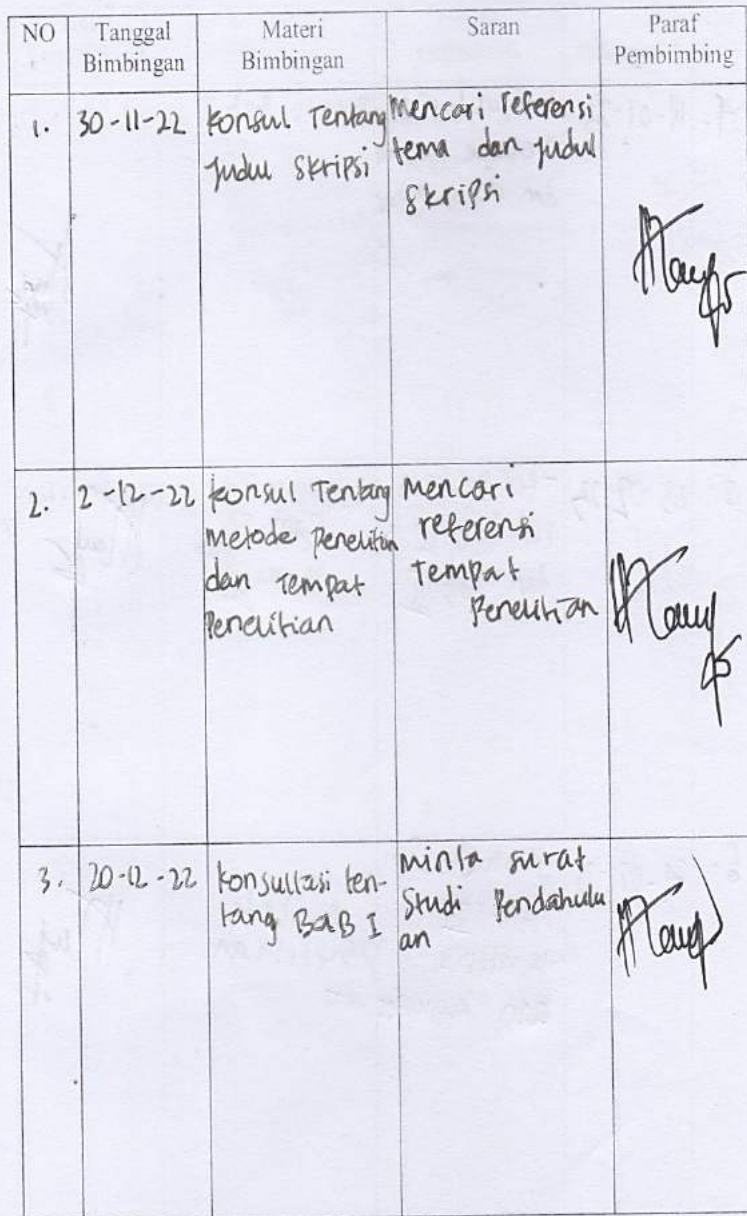 NO Tanggal Bimbingan Materi Bimbingan Saran Paraf Pembimbing
1. 30-11-22 konsul Tentang judul skripsi mencari referensi tema dan judul skripsi
2. 2-12-22 konsul Tentang metode penelitian dan tempat penelitian Mencari referensi tempat penelitian
3. 20-12-22 konsultasi ten-tang BAB I minta surat studi pendahulu an